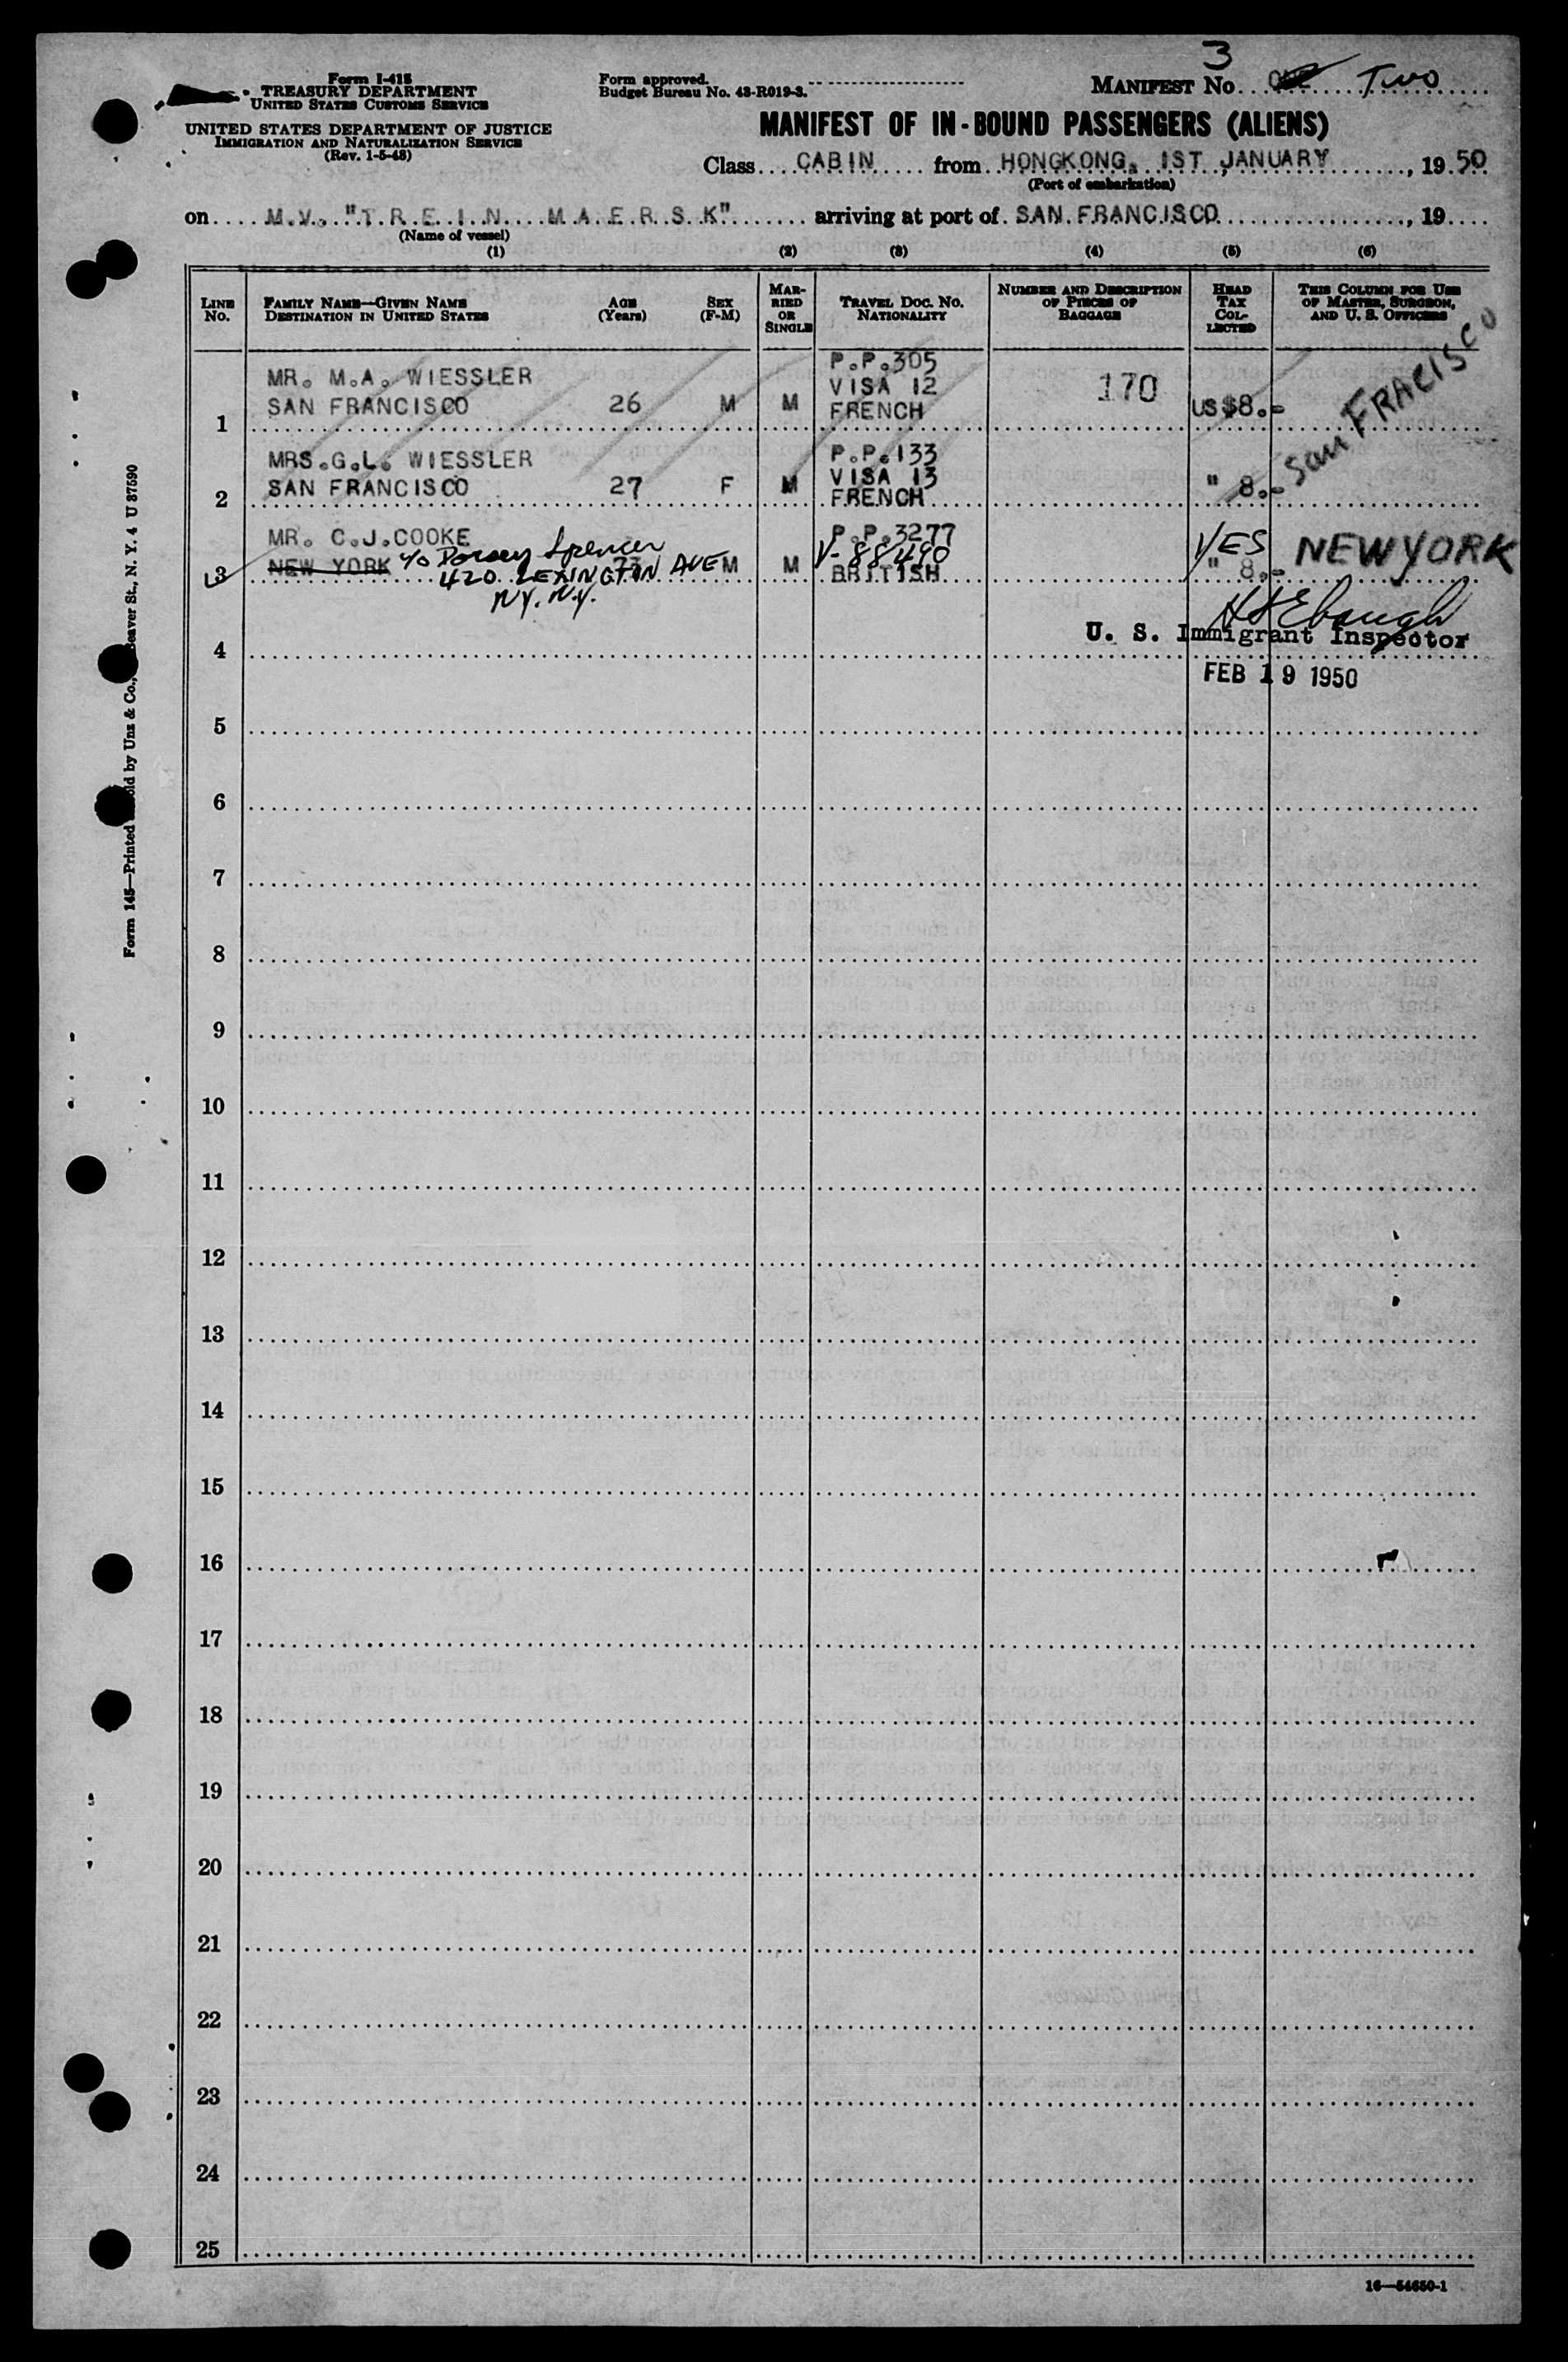 3
Form I-415
TREASURY DEPARTMENT
UNITED STATES CUSTOMS SERVICE
UNITED STATES DEPARTMENT OF JUSTICE
IMMIGRATION AND NATURALIZATION SERVICE
(Rev. 1-5-48)
Form approved.
Budget Bureau No. 43-R019-3.
MANIFEST No. Two
MANIFEST OF IN-BOUND PASSENGERS (ALIENS)
Class CABIN from HONGKONG, 1ST JANUARY, 1950
(Port of embarkation)
on M.V. "TREIN MAERSK" arriving at port of SAN FRANCISCO, 19
(Name of vessel)
(1) (2) (3) (4) (5) (6)
LINE No. FAMILY NAME—GIVEN NAME DESTINATION IN UNITED STATES AGE (Years) SEX (F-M) MARRIED OR SINGLE TRAVEL DOC. No. NATIONALITY NUMBER AND DESCRIPTION OF PIECES OF BAGGAGE HEAD TAX COLLECTED THIS COLUMN FOR USE OF MASTER, SURGEON, AND U. S. OFFICERS
MR. M.A. WIESSLER P.P.305
VISA 12 170
1 SAN FRANCISCO 26 M M FRENCH US $8.- San FRACISCO
MRS.G.L. WIESSLER P.P.133
VISA 13
2 SAN FRANCISCO 27 F M FRENCH " 8.-
MR. C.J.COOKE P.P.3277
c/o Dorsey Spencer V-88490 YES NEW YORK
3 NEW YORK 420 LEXINGTON AVE M M BRITISH " 8.-
NY. N.Y.
U. S. Immigrant Inspector
4
FEB 19 1950
5
6
7
8
9
10
11
12
13
14
15
16
17
18
19
20
21
22
23
24
25
16—54650-1
Form 145—Printed Sold by Unz & Co., Beaver St., N. Y. 4 U 87590